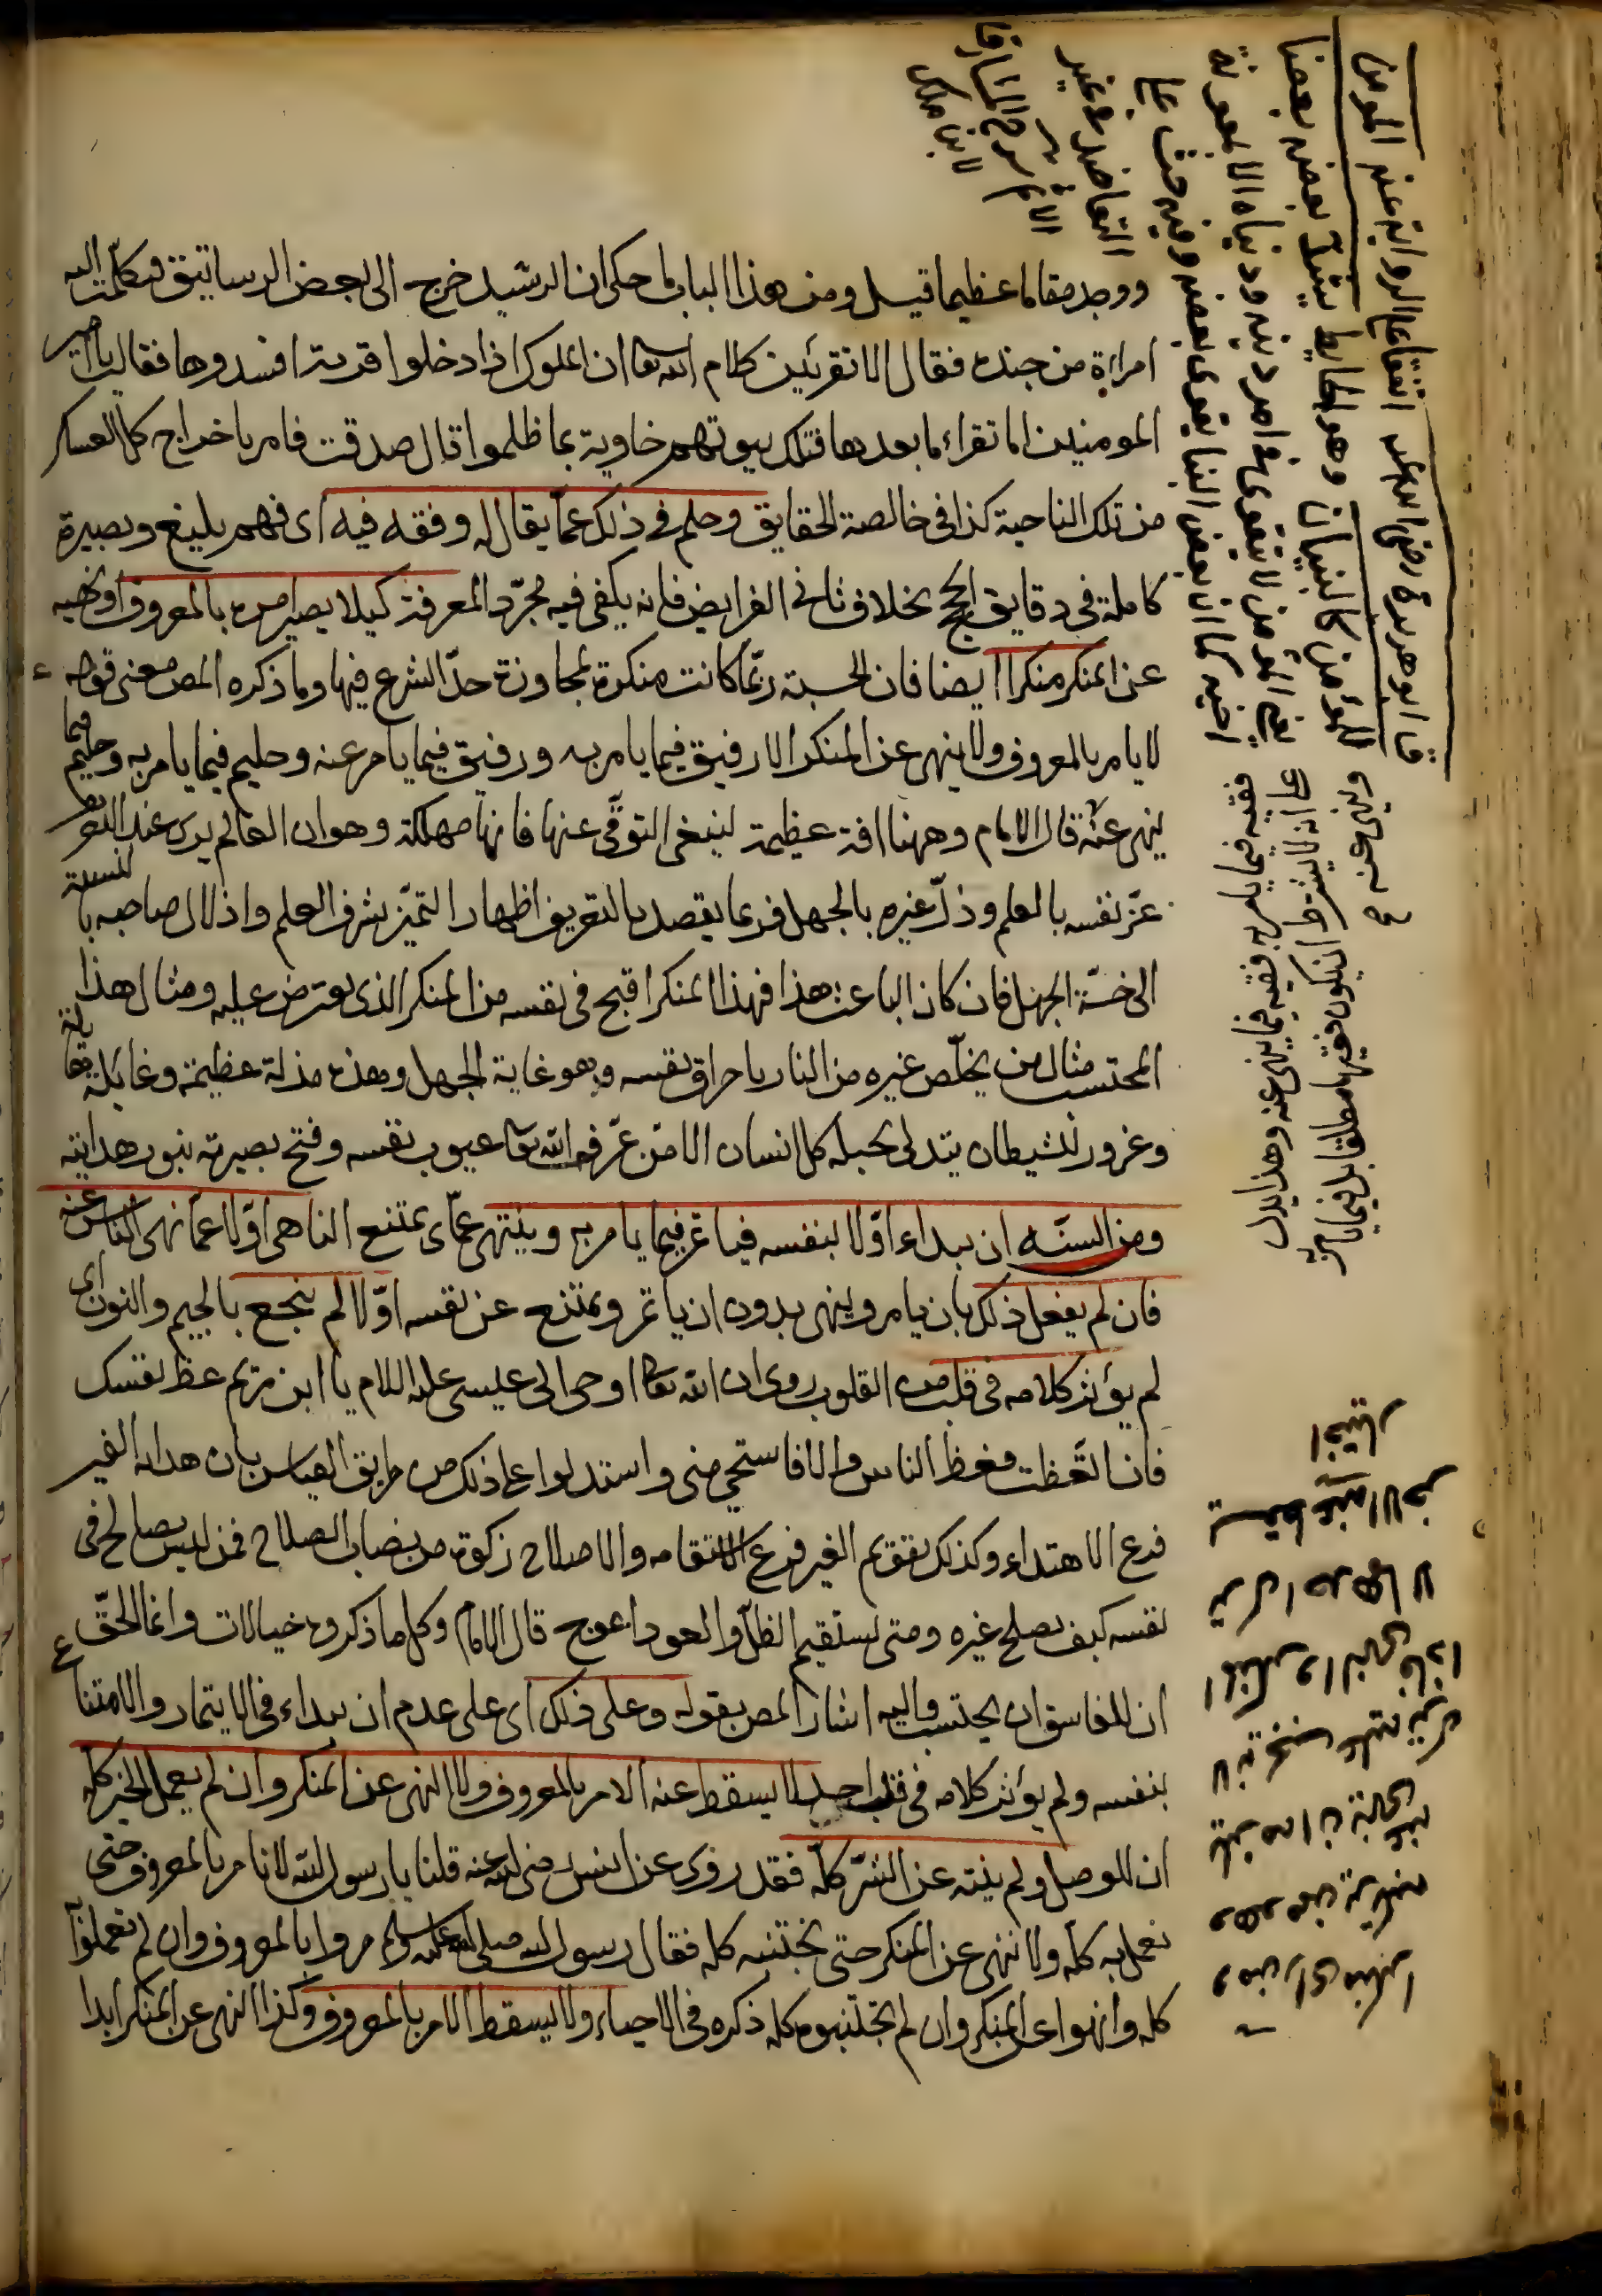 ووجد مقاما عظيما قيل ومن هذا الباب ما حكى ان الرشيد خرج الى بعض الرساتيق فتكلمت اليه
امراءة من جنده فقال الا تقرئين كلام الله تعا ان الملوك اذا دخلوا قرية افسدوها فقالت يا امير
المومنين اما تقراء ما بعدها فتلك بيوتهم خاوية بما ظلموا قال صدقت فامر باخراج كل العسكر
من تلك الناحية كذا فى خالصة الحقايق وحلم فى ذلك عما يقال له وفقه فيه اى فهم بليغ وبصيرة
كاملة فى دقايق الحج بخلاف الفرايض فانه يكفى فيه مجرّد المعرفة كيلا يصير امره بالمعروف او نهيه
عن المنكر منكرا ايضا فان الحسبة ربّما كانت منكرة لمجاوزة حدّ الشرع فيها وما ذكره المص معنى قوله
لا يامر بالمعروف ولا ينهى عن المنكر الا رفيق فيما يامر به ورفيق فيما يامر عنه وحليم فيما يامر به وحليم فيما
ينهى عنه قال الامام وههنا افة عظيمة ينبغى التوقّى عنها فانها مهلكة وهو ان العالم يرى عند التعريف
عزّ نفسه بالعلم وذلّ غيره بالجهل فربما يقصد بالتعريف اظهار التميّز بشرف العلم واذلال صاحبه بالنسبة
الى خسّة الجهل فان كان الباعث هذا فهذا المنكر اقبح فى نفسه من المنكر الذى يعترض عليه ومثال هذا
المحتسب مثال من يخلّص غيره من النار باحراق نفسه وهو غاية الجهل وهذه مذلة عظيمة وغايلة هائلة
وغرور للشيطان يتدلى بحبله كل انسان الا من عرّفه الله تعا عيوب نفسه وفتح بصيرته بنور هدايته
ومن السنّه ان يبداء اوّلا بنفسه فياتمر فيما يامر به وينتهى عمّا اى يمتنع الناهى اوّلا عما نهى الناس عنه
فان لم يفعل ذلك بان يامر وينهى بدون ان ياتمر ويمتنع عن نفسه اوّلا لم ينجع بالجيم والنون اى
لم يؤثر كلامه فى قلب من القلوب روى ان الله تعا اوحى الى عيسى عليه السلام يا ابن مريم عظ نفسك
فان اتعّظت فعظ الناس والا فاستحى منى واستدلوا على ذلك من طريق القياس بان هداية الغير
فرع الاهتداء وكذلك تقويم الغير فرع الاستقامه والاصلاح زكوة من نصاب الصلاح فمن ليس بصالح فى
نفسه كيف يصلح غيره ومتى يستقيم الظلّ والعود اعوج قال الامام وكل ما ذكروه خيالات وانما الحقّ
ان للفاسق ان يحتسب واليه اشار المص بقوله وعلى ذلك اى على عدم ان يبداء فى الايتمار والامتناع
بنفسه ولم يؤثر كلامه فى قلب احد لا يسقط عنه الامر بالمعروف ولا النهى عن المنكر وان لم يعمل الخير كله
ان للوصل ولم ينته عن الشرّ كلّه فقد روى عن انس رضى الله عنه قلنا يا رسول الله لا نامر بالمعروف حتى
نعمل به كلّه ولا ننهى عن المنكر حتى نجتنبه كله فقال رسول الله صلى الله عليه وسلم مروا بالمعروف وان لم تعملوا به
كله وانهوا عن المنكر وان لم تجتنبوه كله ذكره فى الاحياء ولا يسقط الامر بالمعروف وكذا النهى عن المنكر ابدا
ابو هريرة رضى الله عنه اتفقا على الرواية عنه المومن
للمؤمن كالبنيان وهو الحايط يشدّ بعضه بعضا
يعنى المؤمن لا يتقوى فى امر دينه ودنياه الا بمعونة
اخيه كما ان بعض البنا يقوى ببعضه وفيه حث على
التعاضد فى غير
الاثم شرح المشارق
لابن ملك
فقيه فيما يامر به فقيه فيما ينهى عنه وهذا يدل
على انه لا يشترط ان يكون فقيها مطلقا بل فيما يامر به
وينهى عنه ح
ومن راى منكرا
وهو ممن يرتكبه
يلزمه ان ينهى عنه
لانه يجب عليه ترك
المنكر والنهى فاذا
ترك احدهما لا
يسقط عنه الاخر
اختيار